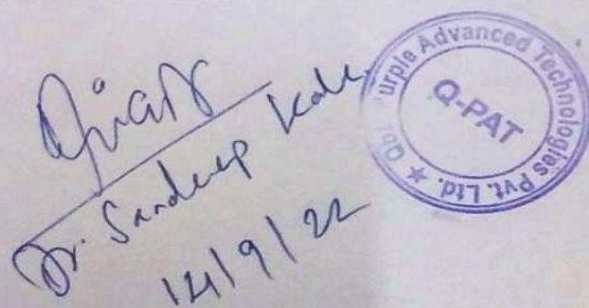 Dr. Sandeep Kale
14/9/22
urple Advanced Technologies Pvt. Ltd. ★
Q-PAT